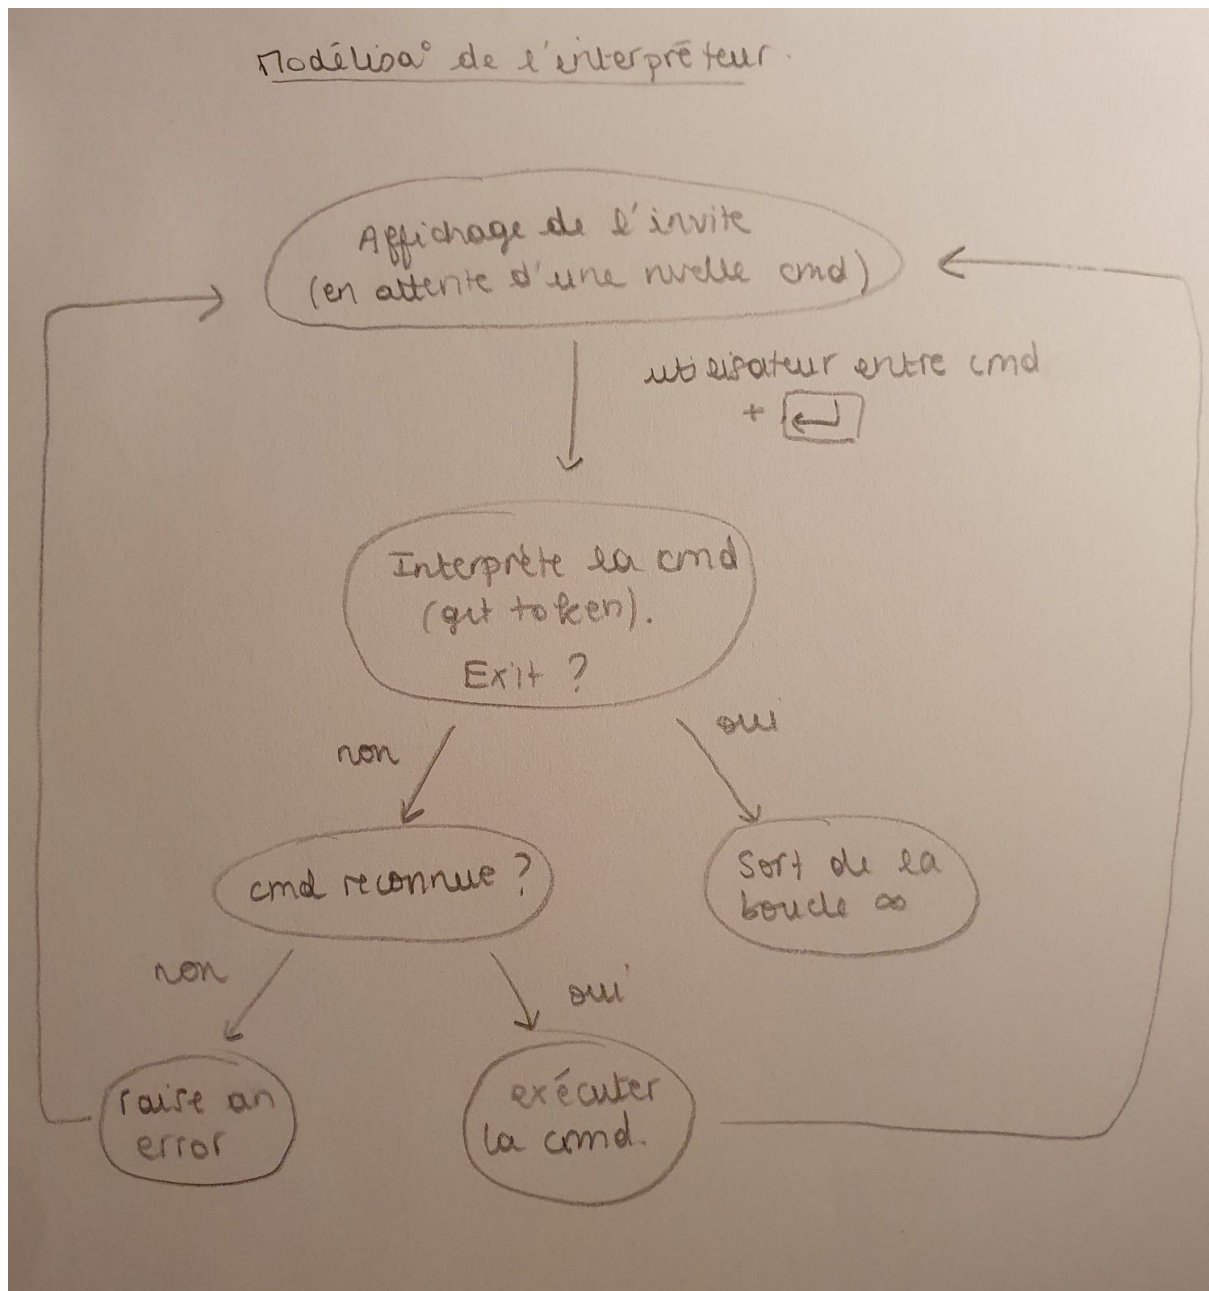 Modélisa° de l'interpréteur.
Affichage de l'invite
(en attente d'une nvelle cmd)
utilisateur entre cmd
+
Interprète la cmd
(get token).
Exit ?
non
oui
cmd reconnue ?
Sort de la
boucle ∞
non
oui
raise an
error
exécuter
la cmd.